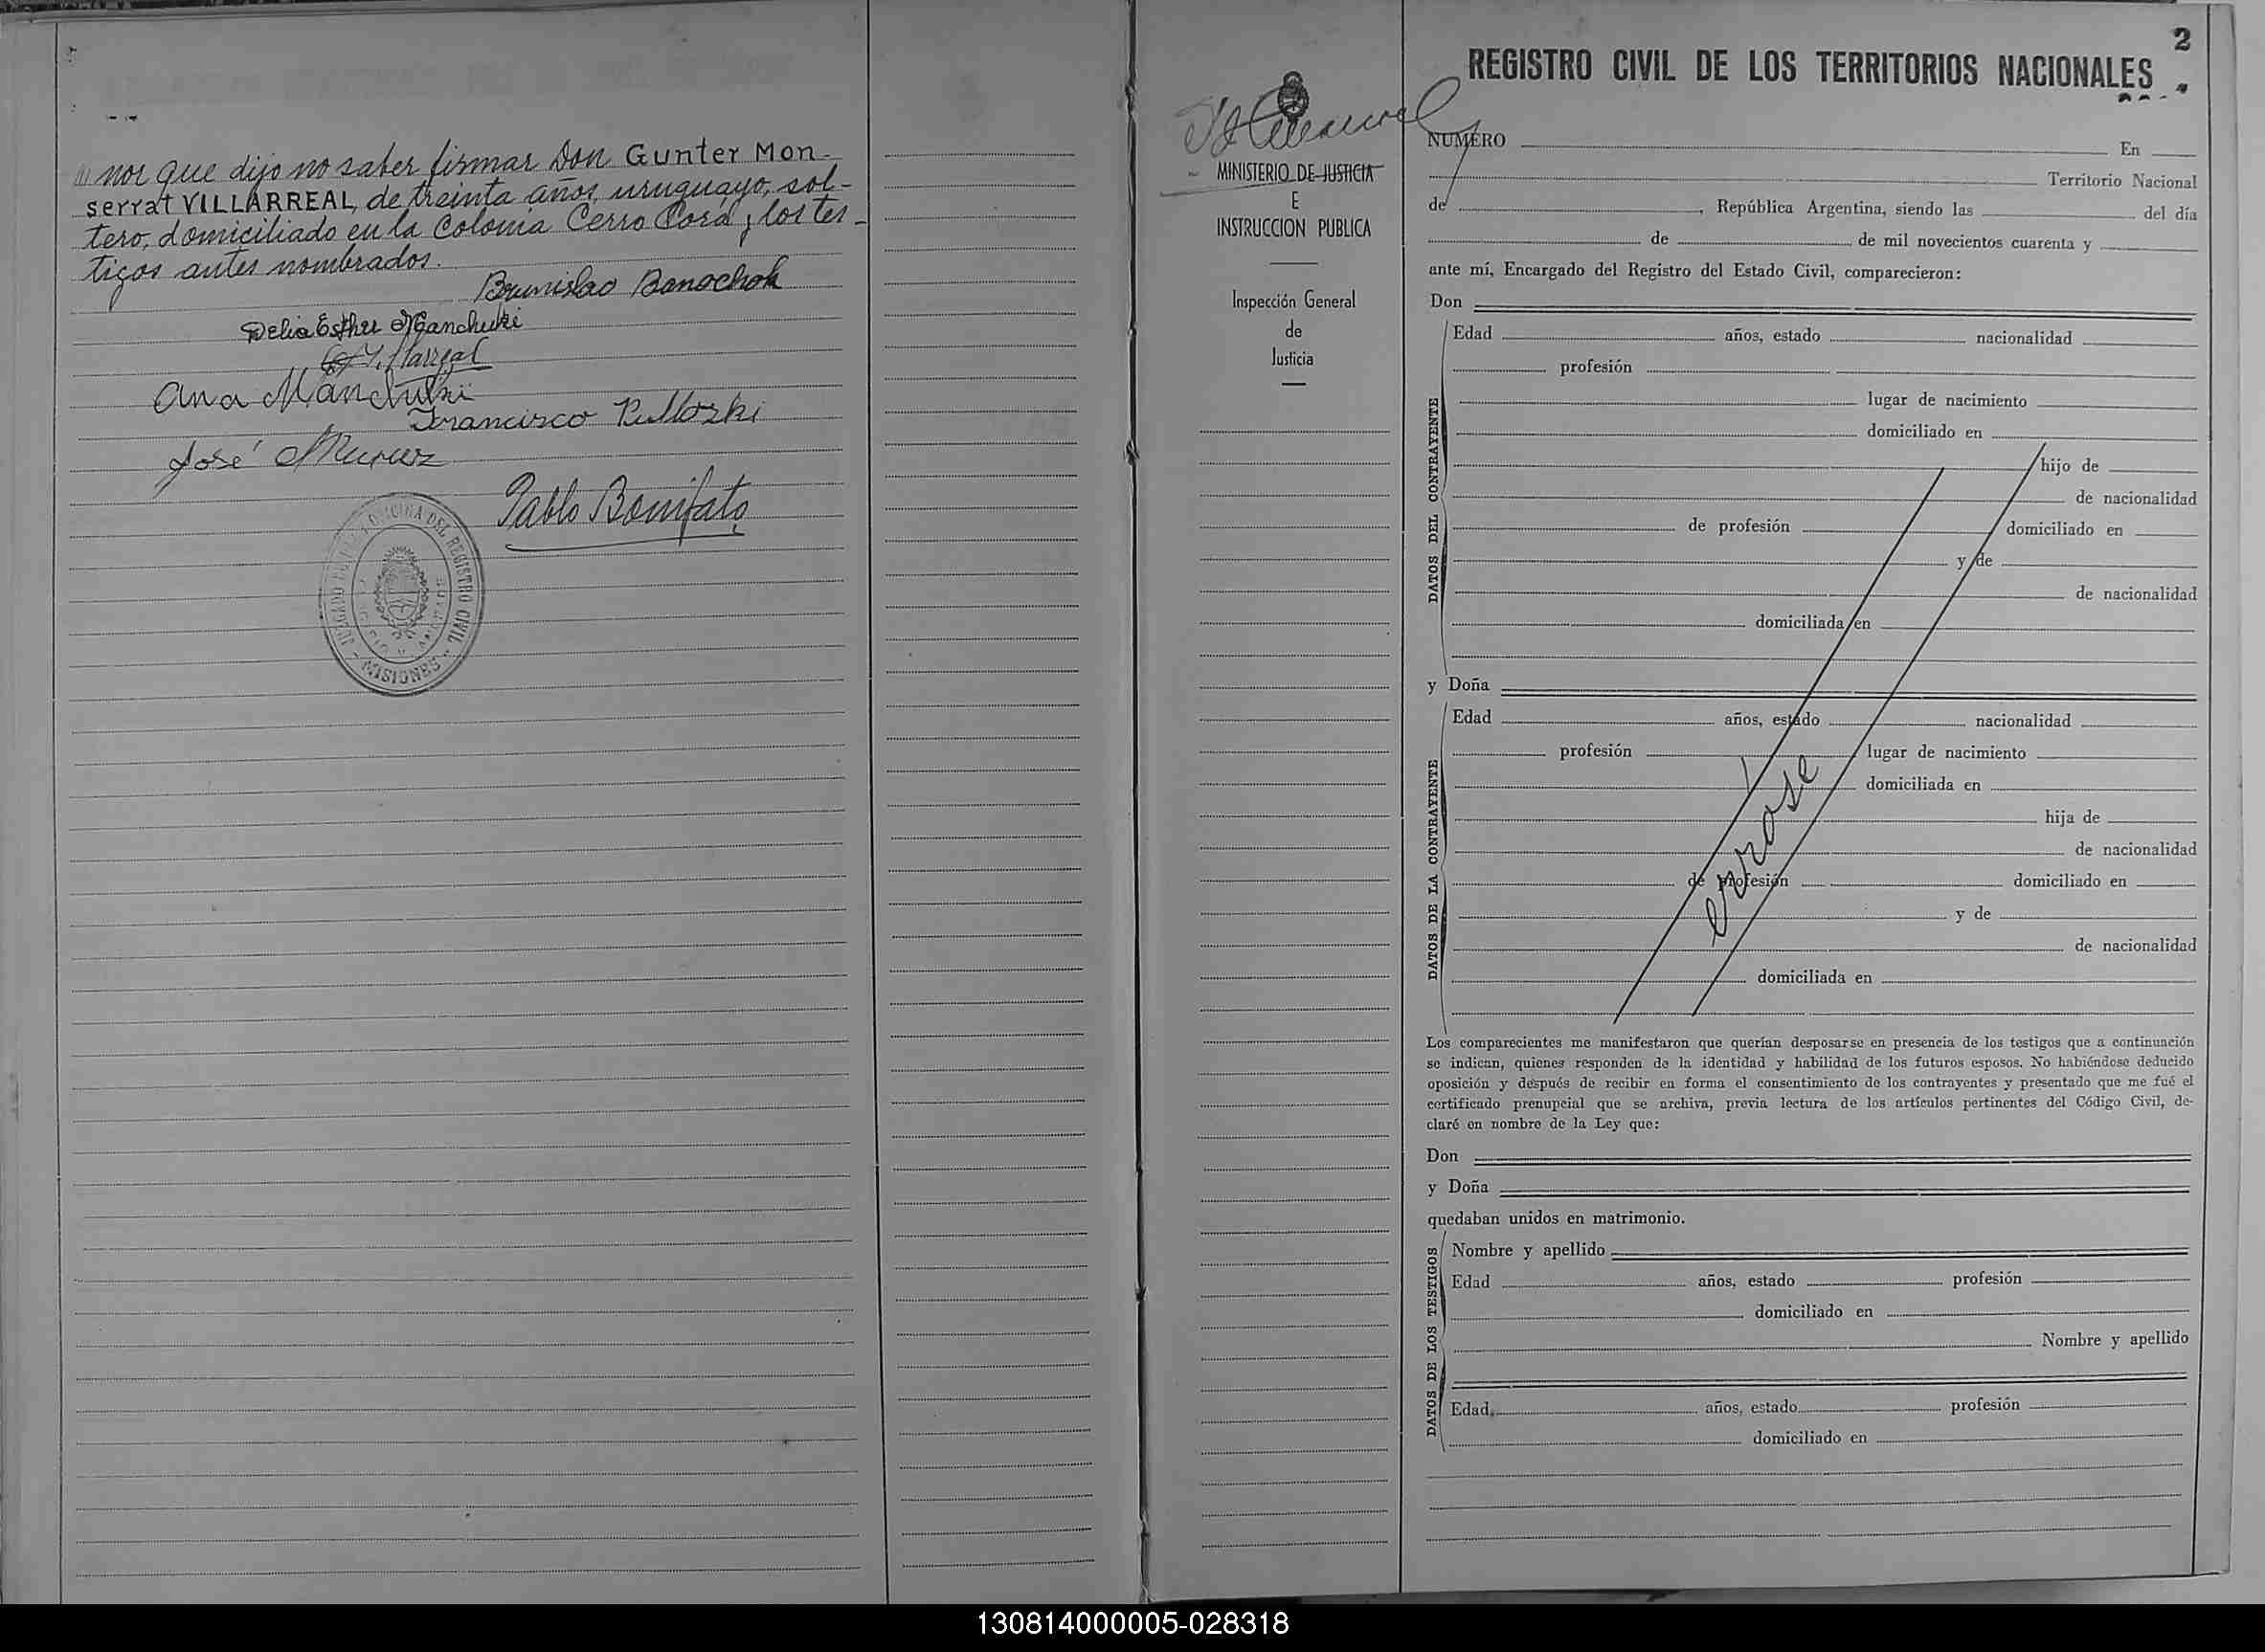 nor que dijo no saber firmar Don Gunter Mon-
serrat VILLARREAL, de treinta años, uruguayo, sol-
tero, domiciliado en la Colonia Cerro Corá y los tes-
tigos antes nombrados.
Brunislao Banachok
Delia Esther Manchuki
G. Villarreal
Ana Manchuki
Francisco
José
Pablo Bonifato
JUZGADO OFICINA DEL REGISTRO CIVIL
MISIONES
MINISTERIO DE JUSTICIA
E
INSTRUCCION PUBLICA
Inspección General
de
Justicia
2
REGISTRO CIVIL DE LOS TERRITORIOS NACIONALES
NUMERO En
Territorio Nacional
de , República Argentina, siendo las del día
de de mil novecientos cuarenta y
ante mí, Encargado del Registro del Estado Civil, comparecieron:
Don
DATOS DEL CONTRAYENTE
Edad años, estado nacionalidad
profesión
lugar de nacimiento
domiciliado en
hijo de
de nacionalidad
de profesión domiciliado en
y de
de nacionalidad
domiciliada en
y Doña
DATOS DE LA CONTRAYENTE
Edad años, estado nacionalidad
profesión lugar de nacimiento
domiciliada en
hija de
de nacionalidad
de profesión domiciliado en
y de
de nacionalidad
domiciliada en
errose
Los comparecientes me manifestaron que querían desposarse en presencia de los testigos que a continuación
se indican, quienes responden de la identidad y habilidad de los futuros esposos. No habiéndose deducido
oposición y después de recibir en forma el consentimiento de los contrayentes y presentado que me fué el
certificado prenupcial que se archiva, previa lectura de los artículos pertinentes del Código Civil, de-
claré en nombre de la Ley que:
Don
y Doña
quedaban unidos en matrimonio.
DATOS DE LOS TESTIGOS
Nombre y apellido
Edad años, estado profesión
domiciliado en
Nombre y apellido
Edad años, estado profesión
domiciliado en
130814000005-028318